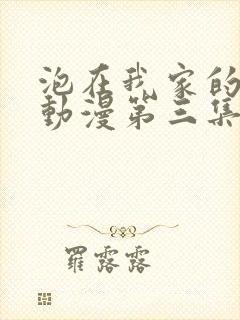 泡在我家的
動漫第三集
羅露露